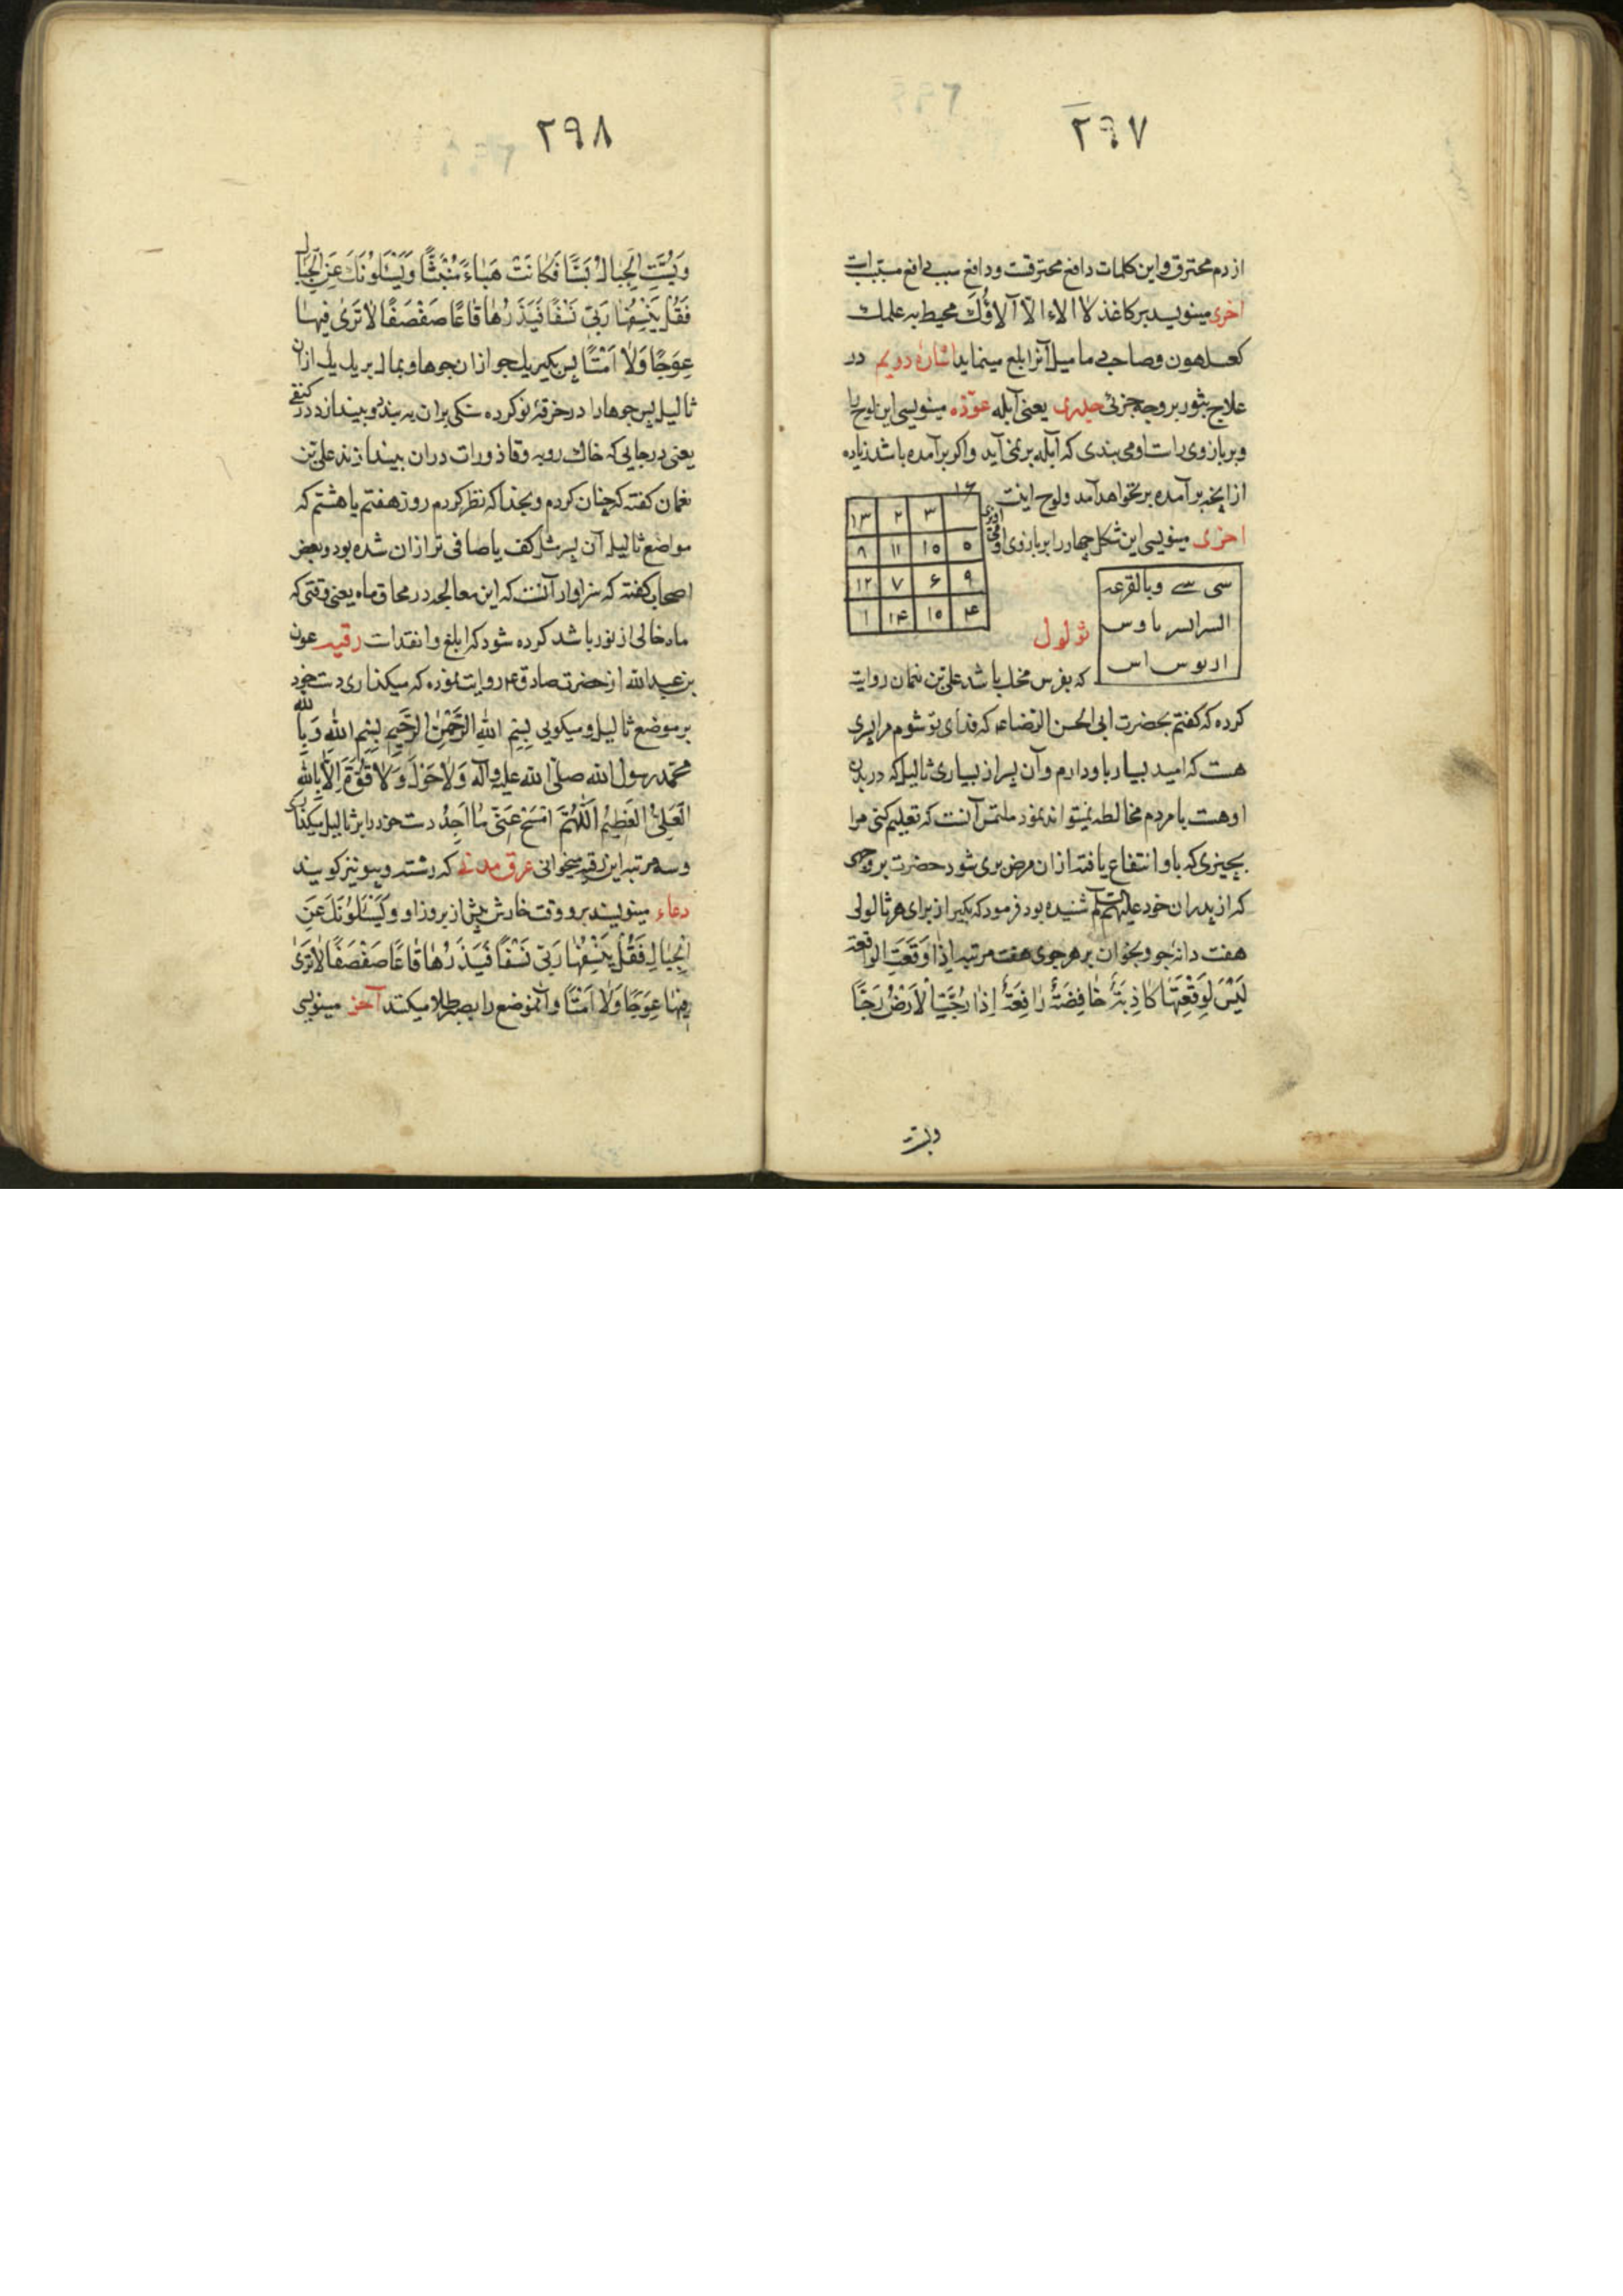 ۲۹۷
از دم محترق و این کلمات دافع محترقست و دافع سبب دافع مسببات
اخری مینویسد بر کاغذ لاا الاء الّا آلاؤُکَ محیط به علمک
کعسلهون وصاحبی مامیل آنرا بلع مینماید اشارهٔ دویم در
علاج بثور بر وجه جزئی جدری یعنی آبله عوّذه مینویسی این لوح را
و بر بازوی راست او می بندی که آبله بر نمی آید و اگر بر آمده باشد زیاده
از آنچه بر آمده بر نخواهد آمد و لوح اینست
۱۶ ۳ ۲ ۱۳
۵ ۱۵ ۱۱ ۸
۹ ۶ ۷ ۱۲
۴ ۱۵ ۱۴ ۱
اخری مینویسی این شکل چهار را بر بازوی او
سی سے وبالقرعه
السرالسر باوس
ادبوس اس
ثؤلول
که بفرس مخل باشد علی بن نعمان روایت
کرده که گفتم بحضرت ابی الحسن الرضاء که فدای تو شوم مرا پسری
هست که امید بسیار باو دارم و آن پسر از بسیاری ثالیل که در بدن
او هست با مردم مخالطه نمیتواند نمود ملتمس آنست که تعلیم کنی مرا
بچیزی که باو انتفاع یافته از ان مرض بری شود حضرت بر وجهی
که از پدران خود علیهم السلم شنیده بود فرمود که بگیر از برای هر ثالولی
هفت دانه جو و بخوان بر هر جوی هفت مرتبه اِذا وَقَعَتِ الواقعة
لَیْسَ لِوَقْعَتِهَا کَاذِبَةٌ خَافِضَةٌ رَافِعَةٌ اِذَا رُجَّتِ الْاَرْضُ رَجًّا
وبست
۲۹۸
وَ بُسَّتِ الْجِبَالُ بَسًّا فَکَانَتْ هَبَاءً مُنْبَثًّا وَیَسْئَلُونَکَ عَنِ الْجِبَالِ
فَقُلْ یَنْسِفُهَا رَبِّی نَسْفًا فَیَذَرُهَا قَاعًا صَفْصَفًا لَا تَرَیٰ فِیهَا
عِوَجًا وَلَا اَمْتًا پس بگیر یک جو از ان جوها و بمال بر یک یک از ان
ثالیل پس جوها را در خرقهٔ نو کرده سنگی بر ان به بند و بینداز در کنفی
یعنی در جایی که خاک روبه و قاذورات در ان بیندازند علی بن
نعمان گفته که چنان کردم و بخدا که نظر کردم روز هفتم یا هشتم که
مواضع ثالیل آن پسر مثل کف یا صافی تر از ان شده بود و بعض
اصحاب گفته که سزاوار آنست که این معالجه در محاق ماه یعنی وقتی که
ماه خالی از نور باشد کرده شود که ابلغ و انفد است رقیه عون
بن عبدالله از حضرت صادق ع روایت نموده که میگذاری دست خود
بر موضع ثالیل و میگویی بِسْمِ اللهِ الرَّحْمٰنِ الرَّحِیمِ بِسْمِ اللهِ وَ بِاللهِ
مُحَمَّد رسول الله صلّی الله علیه و آله وَلَا حَوْلَ وَلَا قُوَّةَ اِلَّا بِاللهِ
الْعَلِیِّ الْعَظِیمِ اَللّٰهُمَّ امْسَحْ عَنِّی مَا اَجِدُ دست خود را بر ثالیل میکذاری
و سه مرتبه این رقیه میخوانی عرق مدنی که رشته و پیو نیز گویند
دعاء مینویسند بر و وقت خارش پیش از بروز او وَیَسْئَلُونَکَ عَنِ
الْجِبَالِ فَقُلْ یَنْسِفُهَا رَبِّی نَسْفًا فَیَذَرُهَا قَاعًا صَفْصَفًا لَا تَرَیٰ
فِیهَا عِوَجًا وَلَا اَمْتًا و آنموضع را بصبر طلا میکند آخر مینویسی